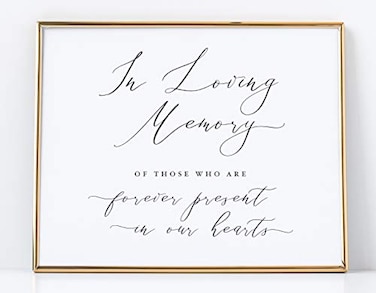 In Loving
Memory
OF THOSE WHO ARE
forever present
in our hearts